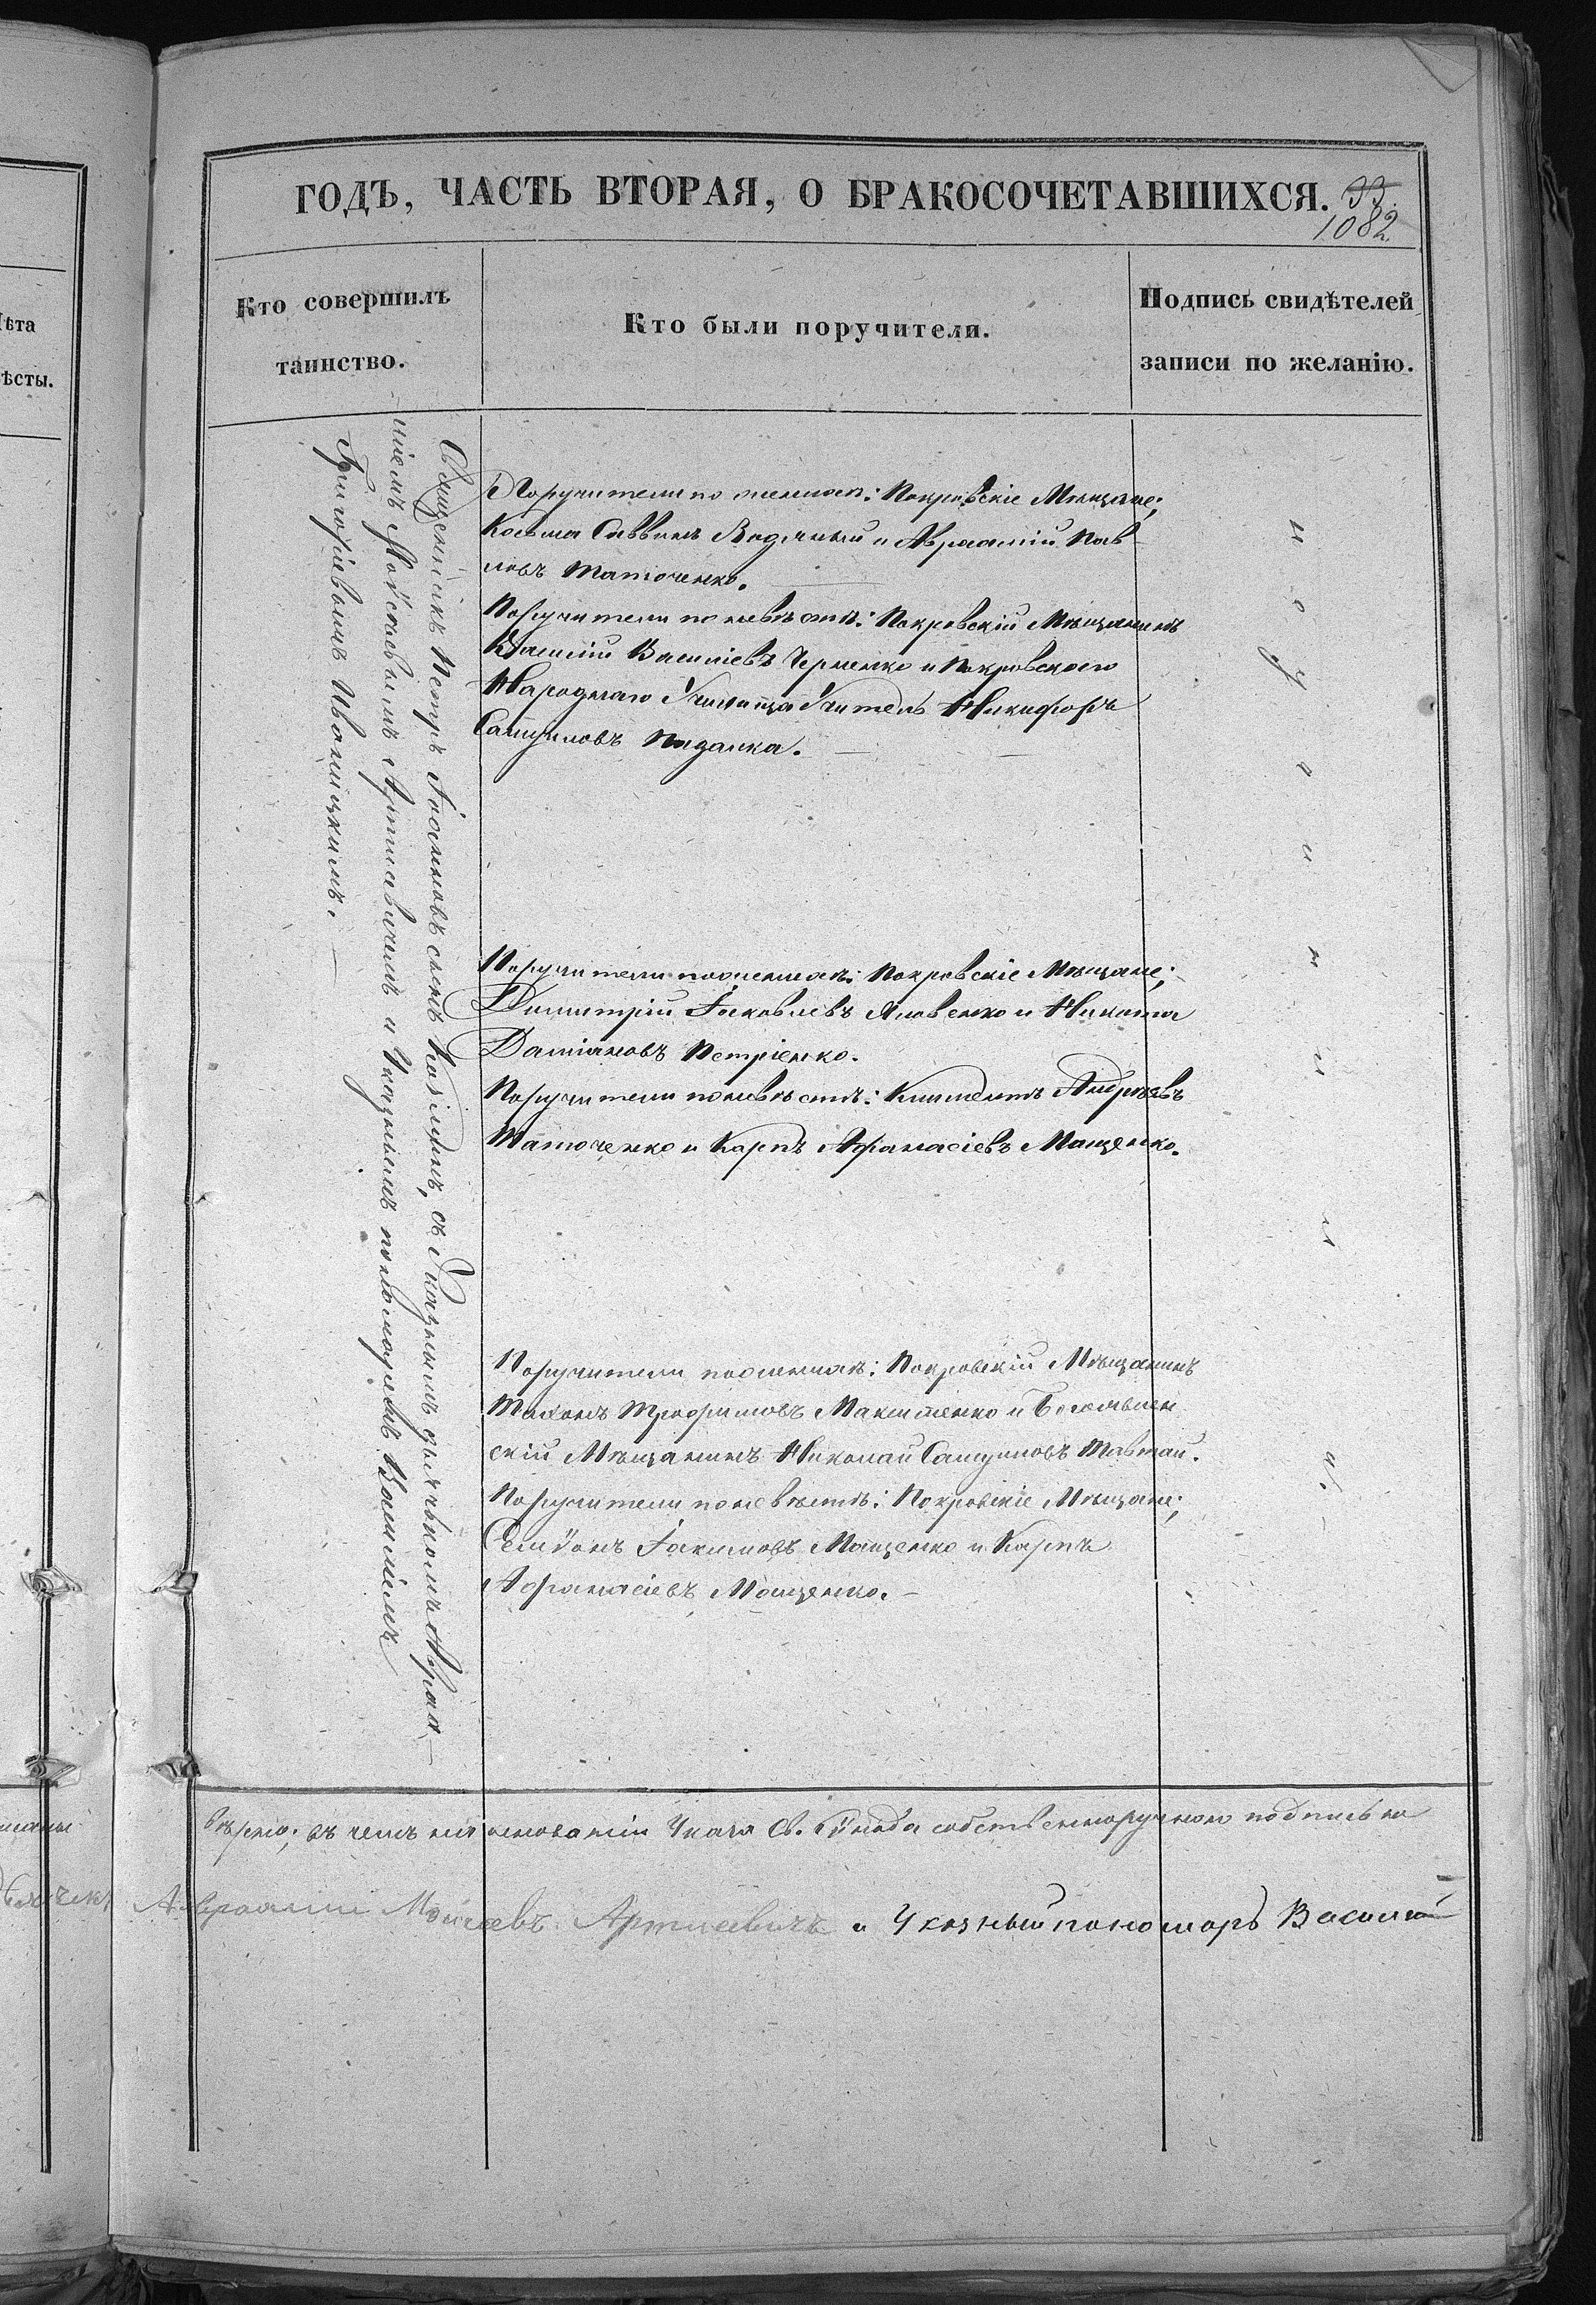 ГОДЪ, ЧАСТЬ ВТОРАЯ, О БРАКОСОЧЕТАВШИХСЯ.
33.
1082
Кто совершилъ
таинство.
Кто были поручители.
Подпись свидѣтелей
записи по желанію.
ѣта
ѣсты.
Священникъ Петръ Іоанновъ сынъ, съ Указнымъ дьячкомъ Авраа-
міемъ Мойсеевымъ Артишевичемъ и Указнымъ пономаремъ Василіемъ
Григоріевымъ Иваницкимъ. —
Поручители по женихѣ: Покровскіе Мѣщане;
Косьма Саввинъ Водяный и Авраамій Пав-
ловъ Таточенко.
Поручители по невѣстѣ: Покровскій Мѣщанинъ
Василій Василіевъ Черненко и Покровскаго
Народнаго Училища Учитель Никифоръ
Самуиловъ Пидалка. —
Поручители по женихѣ: Покровскіе Мѣщане;
Димитрій Іаковлевъ Яловенко и Никита
Даміановъ Петріенко.
Поручители по невѣстѣ: Климентъ Андрѣевъ
Таточенко и Карпъ Афанасіевъ Мащенко.
Поручители по женихѣ: Покровскій Мѣщанинъ
Трофимовъ Максименко и Богоявлен
скій Мѣщанинъ Николай Самуиловъ Товтай.
Поручители по невѣстѣ: Покровскіе Мѣщане;
Іакимовъ Мащенко и Карпъ
Афанасіевъ Мащенко. —
вѣрно; въ чемъ на основаніи Указа Св. Сѵнода собственноручною подписью
дьячекъ Авраамій Мойсеевъ Артишевичъ и Указный пономарь Василій